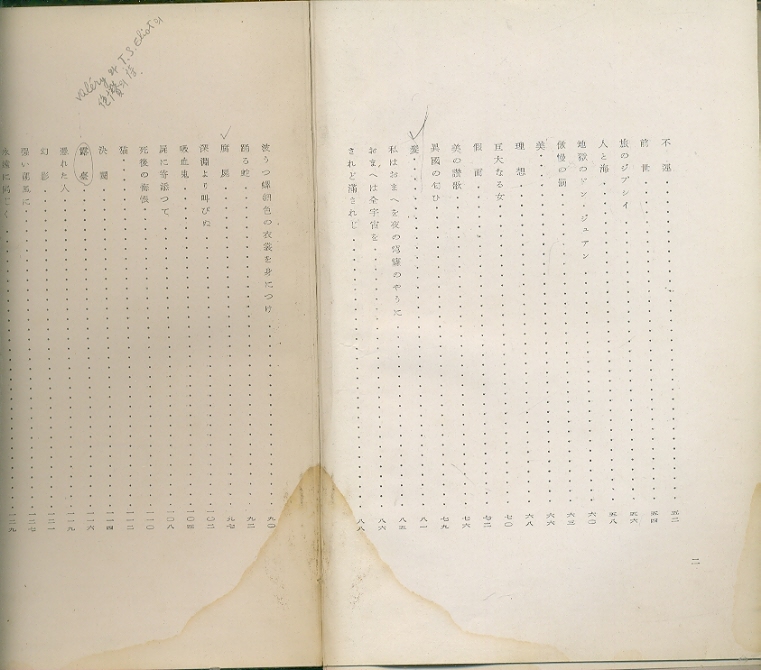 不運・・・五二
前世・・・五四
旅のジプシイ・・・五六
人と海・・・五八
地獄のドン・ジュアン・・・六〇
傲慢の罰・・・六三
美・・・六六
理想・・・六八
巨大なる女・・・七〇
假面・・・七二
美の讃歌・・・七六
異國の匂ひ・・・七九
髪・・・八一
私はおまへを夜の穹窿のやうに・・・八五
おまへは全宇宙を・・・八六
されど滿されじ・・・八八
二
波うつ螺鈿色の衣裳を身につけ・・・九〇
踊る蛇・・・九二
腐屍・・・九七
深淵より叫びぬ・・・一〇二
吸血鬼・・・一〇四
屍に寄添つて・・・一〇八
死後の悔恨・・・一一〇
猫・・・一一二
決鬪・・・一一四
露臺・・・一一六
憑れた人・・・一一九
幻影・・・一二一
强い龍風に・・・一二七
永遠に同じく・・・一二九
Valéry 와 T.S. Eliot의